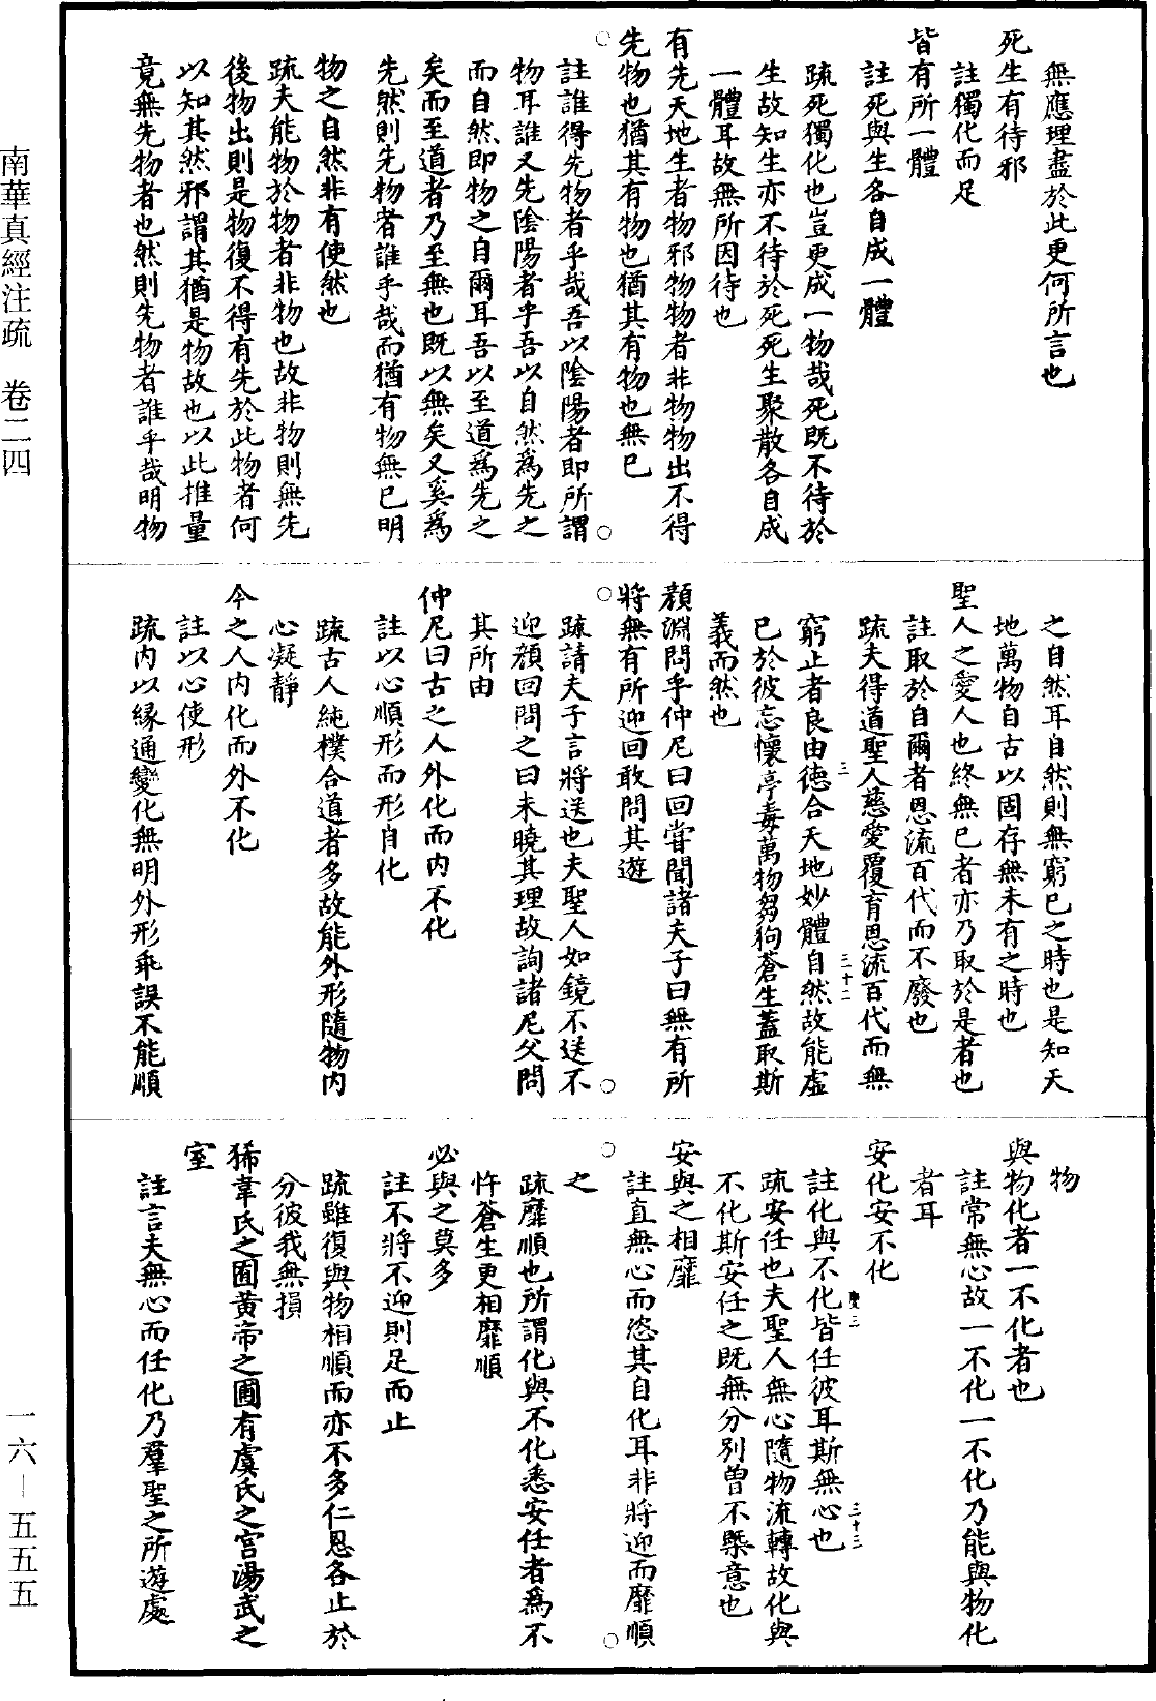 無應理盡於此更何所言也
死生有待邪
註獨化而足
皆有所一體
註死與生各自成一體
疏死獨化也豈更成一物哉死既不待於
生故知生亦不待於死死生聚散各自成
一體耳故無所因待也
有先天地生者物邪物物者非物物出不得
先物也猶其有物也猶其有物也無已
註誰得先物者乎哉吾以陰陽者即所謂
物耳誰又先陰陽者乎吾以自然爲先之
而自然即物之自爾耳吾以至道爲先之
矣而至道者乃至無也既以無矣又奚爲
先然則先物者誰乎哉而猶有物無已明
物之自然非有使然也
疏夫能物於物者非物也故非物則無先
後物出則是物復不得有先於此物者何
以知其然邪謂其猶是物故也以此推量
竟無先物者也然則先物者誰乎哉明物
之自然耳自然則無窮已之時也是知天
地萬物自古以固存無未有之時也
聖人之愛人也終無已者亦乃取於是者也
註取於自爾者恩流百代而不廢也
疏夫得道聖人慈愛覆育恩流百代而無
窮止者良由德合天地妙體自然故能虛
已於彼忘懷亭毒萬物芻狗蒼生蓋取斯
義而然也
三
三十二
顔淵問乎仲尼曰回嘗聞諸夫子曰無有所
將無有所迎回敢問其遊
疏請夫子言將送也夫聖人如鏡不送不
迎顔回問之曰未曉其理故詢諸尼父問
其所由
仲尼曰古之人外化而内不化
註以心順形而形自化
疏古人純樸合道者多故能外形隨物内
心凝靜
今之人内化而外不化
註以心使形
疏内以緣通變化無明外形乖誤不能順
物
與物化者一不化者也
註常無心故一不化一不化乃能與物化
者耳
安化安不化
註化與不化皆任彼耳斯無心也
疏安任也夫聖人無心隨物流轉故化與
不化斯安任之既無分别曾不槩意也
三十三
安與之相靡
註直無心而恣其自化耳非將迎而靡順
之
疏靡順也所謂化與不化悉安任者爲不
忤蒼生更相靡順
必與之莫多
註不將不迎則足而止
疏雖復與物相順而亦不多仁恩各止於
分彼我無損
狶韋氏之囿黄帝之圃有虞氏之宫湯武之
室
註言夫無心而任化乃羣聖之所遊處
南華真經注疏 卷二四
一六—五五五